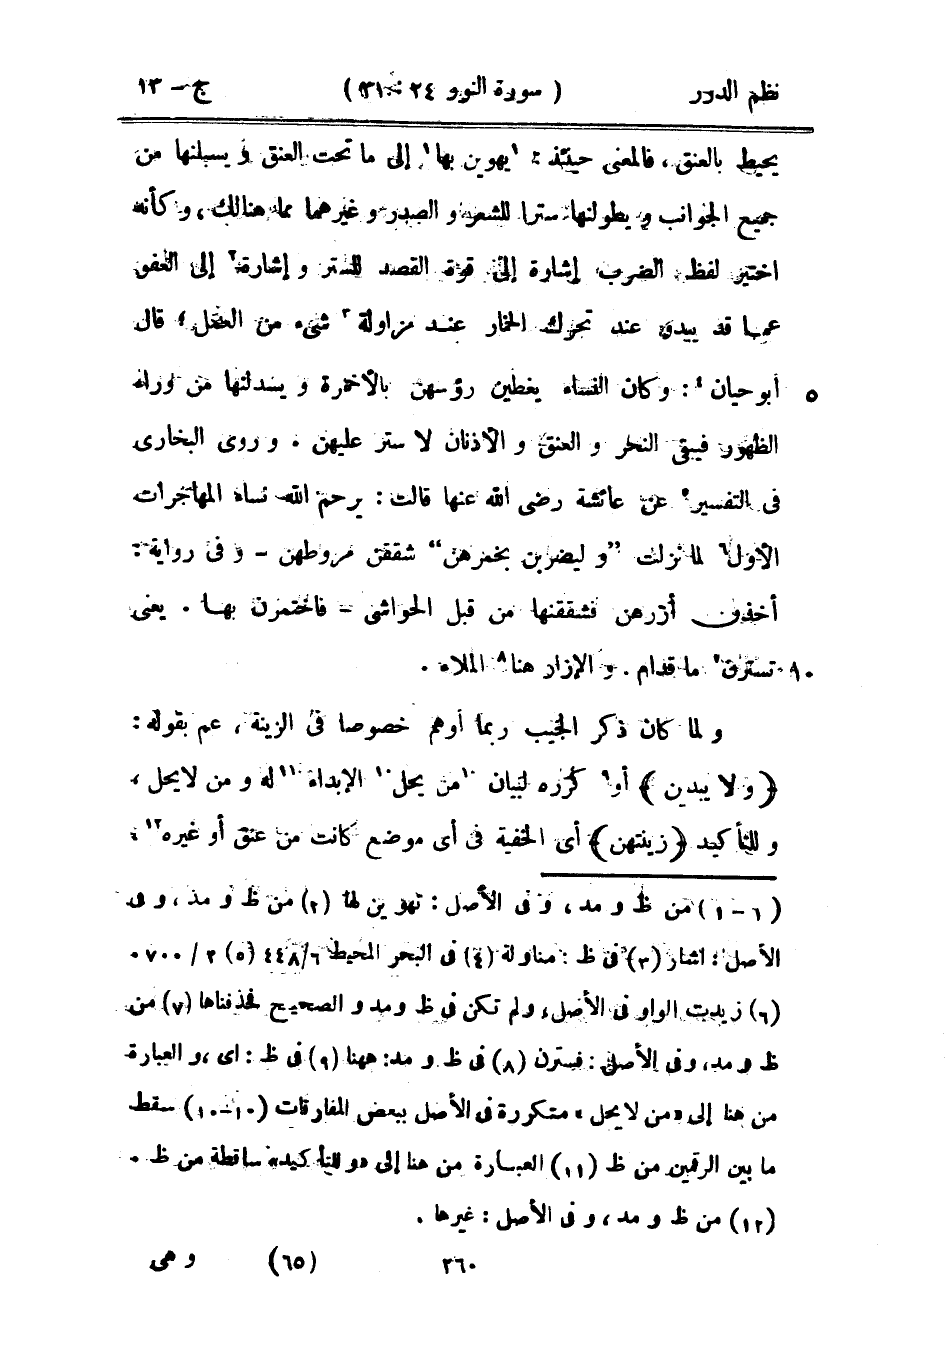 نظم الدرر ( سورة النور ٢٤ : ٣١ ) ج - ١٣
يحيط بالعنق ، فالمعنى حينئذ : ١يهوين بها١ إلى ما تحت العنق و يسبلنها من
جميع الجوانب و يطولنها سترا للشعر و الصدر و غيرهما مما هنالك ، و كأنه
اختير لفظ الضرب إشارة إلى قوة القصد للستر و إشارة٢ إلى العفو
عما قد يبدو عند تحرك الخمار عند مزاولة٣ شيء من العمل ؛ قال
٥ أبو حيان٤ : و كان النساء يغطين رؤسهن بالأخمرة و يسدلنها من وراء
الظهور فيبقى النحر و العنق و الأذنان لا ستر عليهن . و روى البخارى
فى التفسير٥ عن عائشة رضى الله عنها قالت : يرحم الله نساء المهاجرات
الأول٦ لما نزلت ”و ليضربن بخمرهن“ شققن مروطهن - و فى رواية :
أخذن أزرهن فشققنها من قبل الحواشى - فاختمرن بها . يعنى
١٠ تسترن٧ ما قدام . و الإزار هنا٨ الملاء .
و لما كان ذكر الجيب ربما أوهم خصوصا فى الزينة ، عم بقوله :
﴿و لا يبدين﴾ أو٩ كرره لبيان ١٠من يحل١٠ الإبداء١١ له و من لا يحل ،
و للتأكيد ﴿زينتهن﴾ أى الخفية فى أى موضع كانت من عنق أو غيره١٢ ؛
(١-٦) من ظ و مد ، و فى الأصل : تهوين لها (٢) من ظ و مد ، و فى
الأصل : اشار (٣) فى ظ : مناولة (٤) فى البحر المحيط ٦/٤٤٨ (٥) ٢ / ٧٠٠ .
(٦) زيدت الواو فى الأصل ، و لم تكن فى ظ و مد و الصحيح فحذفناها (٧) من
ظ و مد ، و فى الأصل : فسترن (٨) فى ظ و مد : ههنا (٩) فى ظ : اى ، و العبارة
من هنا إلى « من لا يحل » متكررة فى الأصل ببعض المفارقات (١٠-١٠) سقط
ما بين الرقمين من ظ (١١) العبارة من هنا إلى « و للتأكيد » ساقطة من ظ .
(١٢) من ظ و مد ، و فى الأصل : غيرها .
٢٦٠ (٦٥) و هى